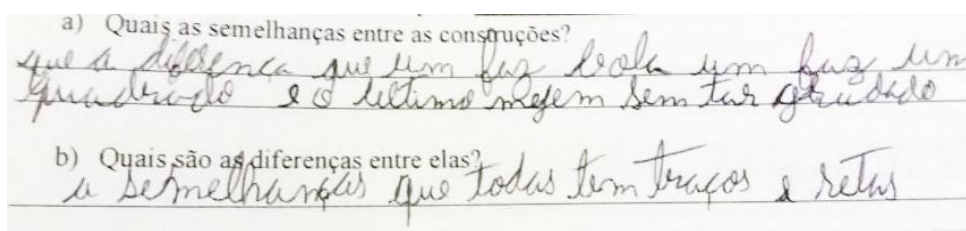 a) Quais as semelhanças entre as construções?
que a diferença que um faz bola um faz um
quadrado e o último mexem sem tar grudado
b) Quais são as diferenças entre elas?
a semelhanças que todas tem traços e retas